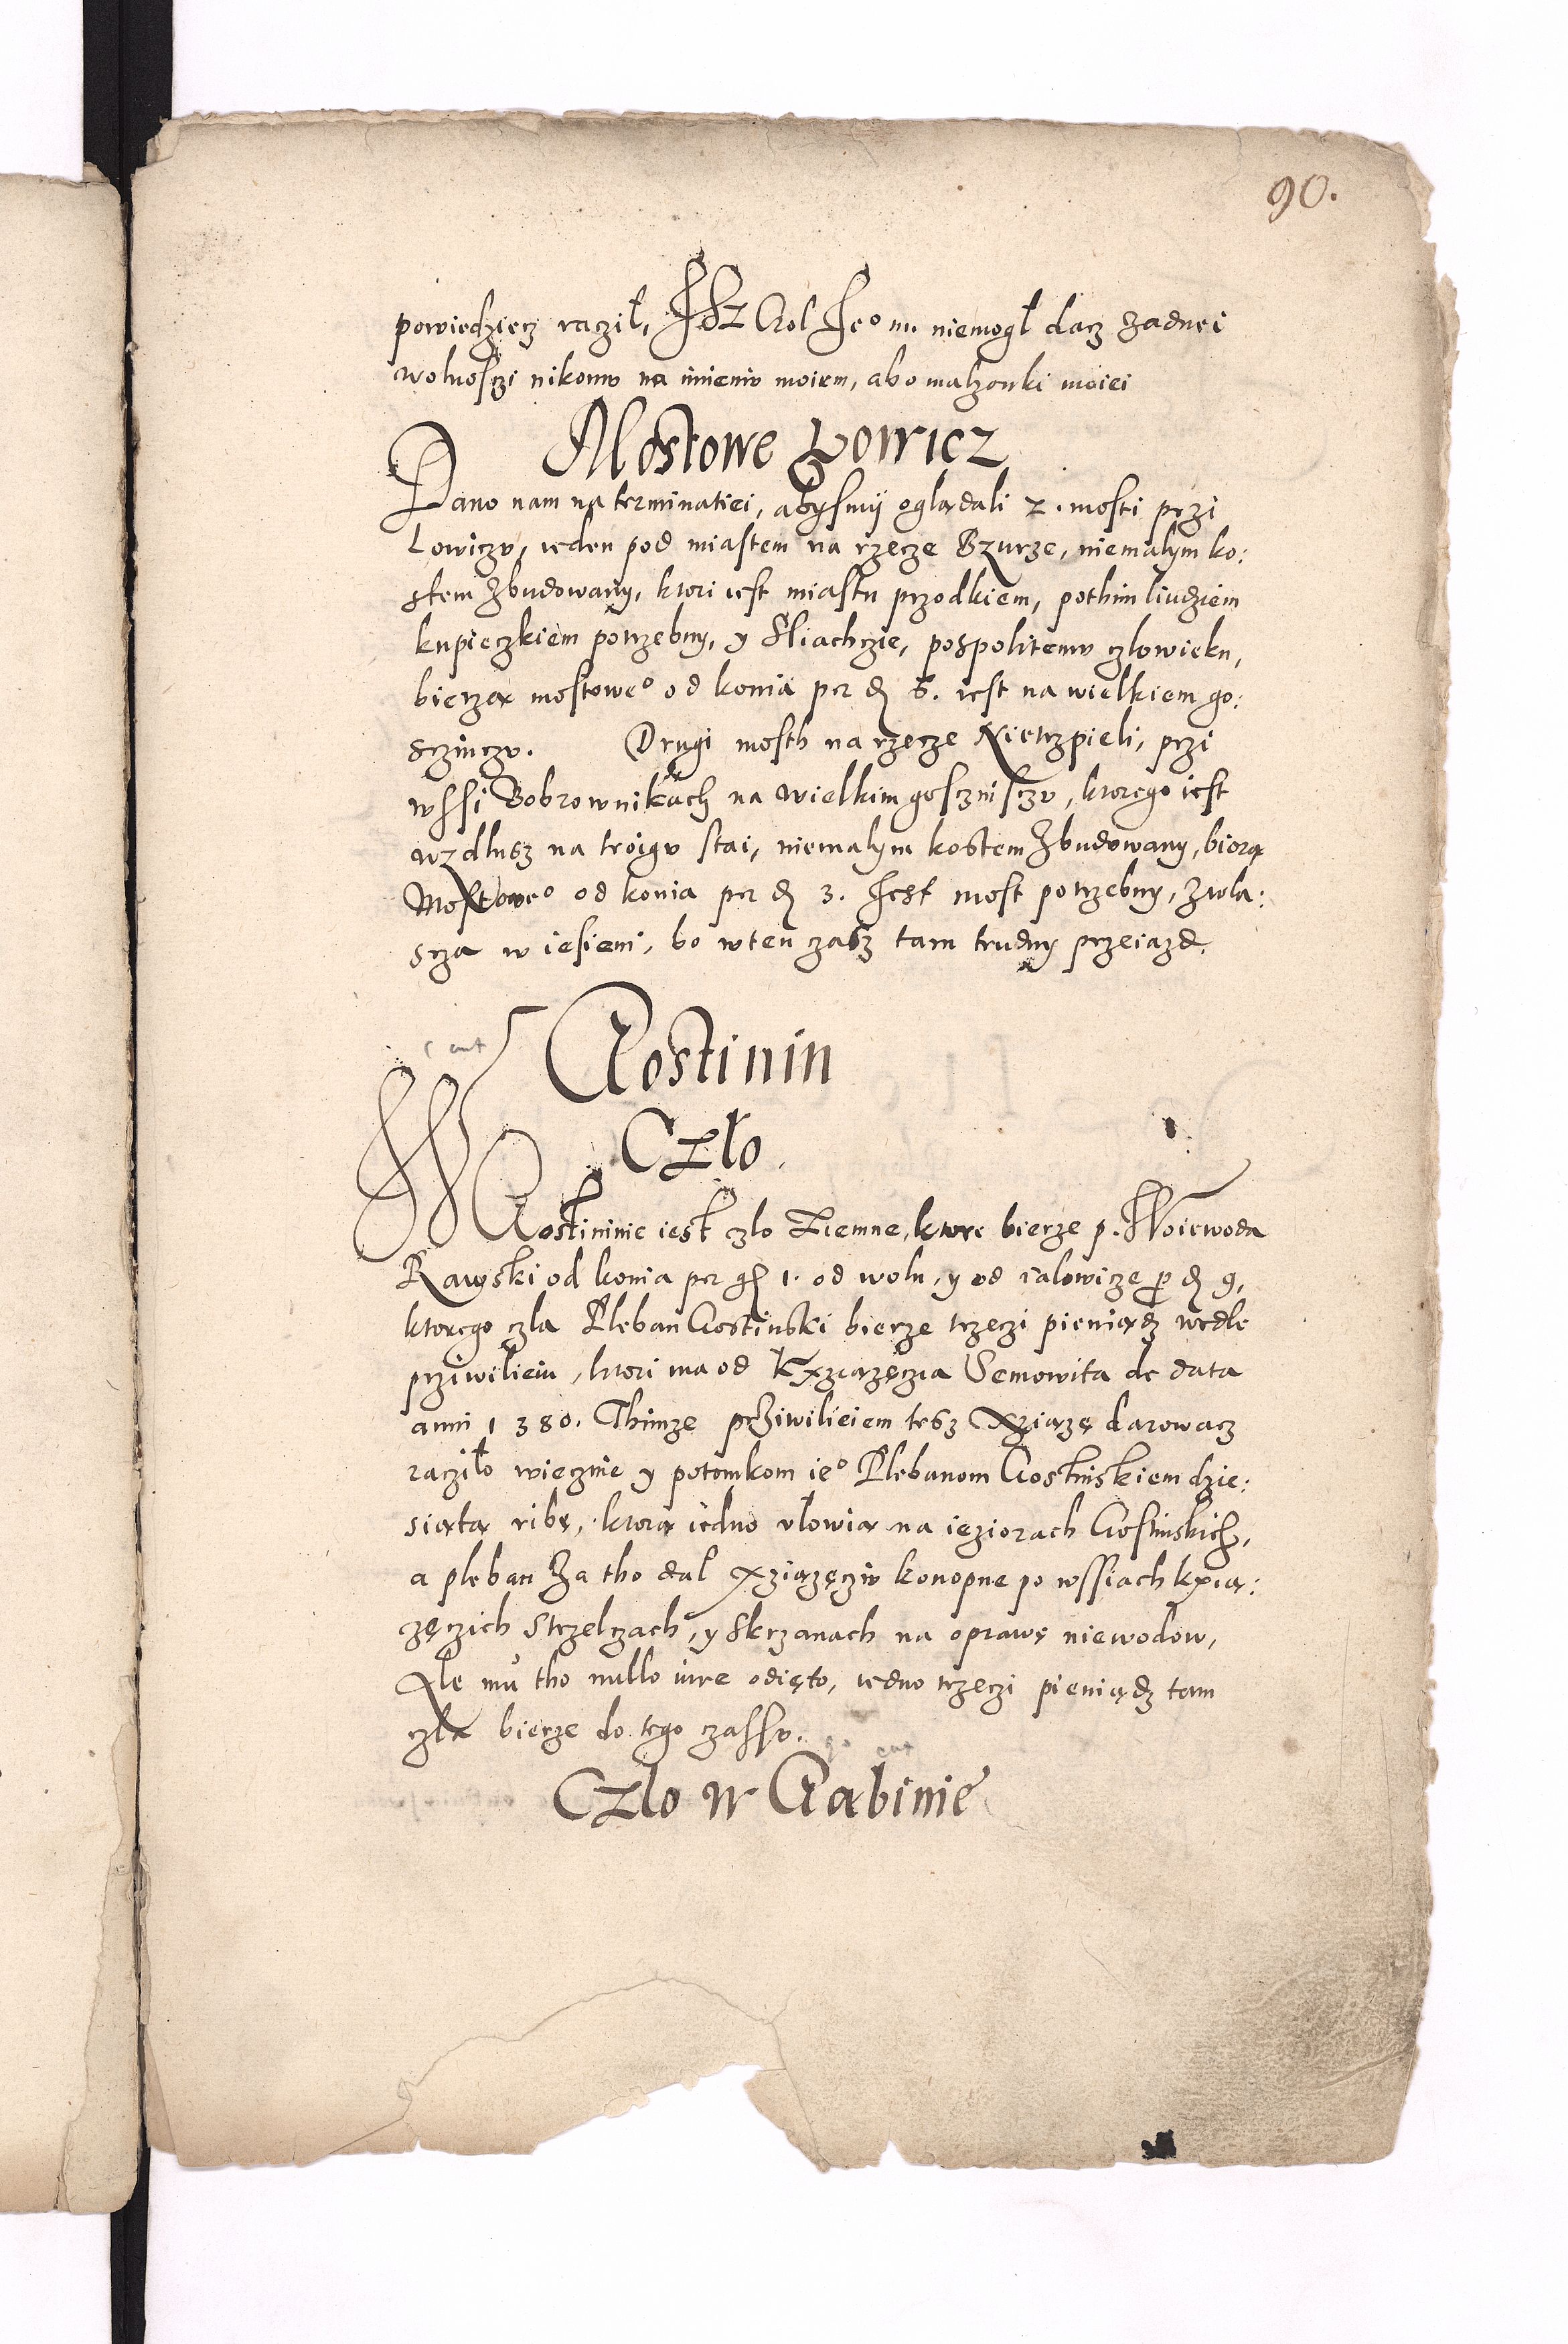 90.
powiedziecz raczil, Isz Crol Ieo m. niemogl dacz zadnei
wolnosczi nikomv na imieniv moiem, abo malzonki moiei
Mostowe Lowicz
Dano nam na terminatiei, abysmÿ oglądali 2. mosti przi
Lowiczv, ieden pod miastem na rzecze Bzurze, niemalym ko:
stem zbudowany, ktori iest miastu przodkiem, pothim liudziem
kupieczkiem potrzebny, y Sliachczie, pospolitemv czlowieku,
bierzą mostoweo od konia per d 6. iest na wielkiem go:
sczinczv. Drugi mosth na rzecze Nietrzpieli, przi
wssi Bobrownikach na wielkim gosczniczv, ktorego iest
wzdlusz na troigv stai, niemalym kostem zbudowany, biorą
Mostoweo od konia per d 3. Iest most potrzebny, zwla:
scza w iesieni, bo wten czasz tam trudny przeiazd.
Gostinin
Czło.
W Gostininie iest czlo Ziemne, ktore bierze p. Woiewoda
Rawski od konia per gs 1. od wolu, y od ialowicze p d 9,
ktorego czla Pleban Gostinski bierze trzeczi pieniądz wedle
prziwileiu, ktori ma od Kxziazęczia Semowita de data
anni 1380. Thimze prziwilieiem tesz Xziązę darowacz
raczilo wiecznie y potomkom ieo Plebanom Gostinskiem dzie:
siątą ribę, ktorą iedno vlowią na ieziorach Gostinskich,
a pleban za tho dal xziązęcziv konopne po wssiach kxią:
zęczich Strzelczach, y Skrzanach na oprawę niewodow,
Ale mu tho nullo iure odięto, iedno trzeczi pieniądz tam
czla bierze do tego czassv.
Czlo w Gabinie